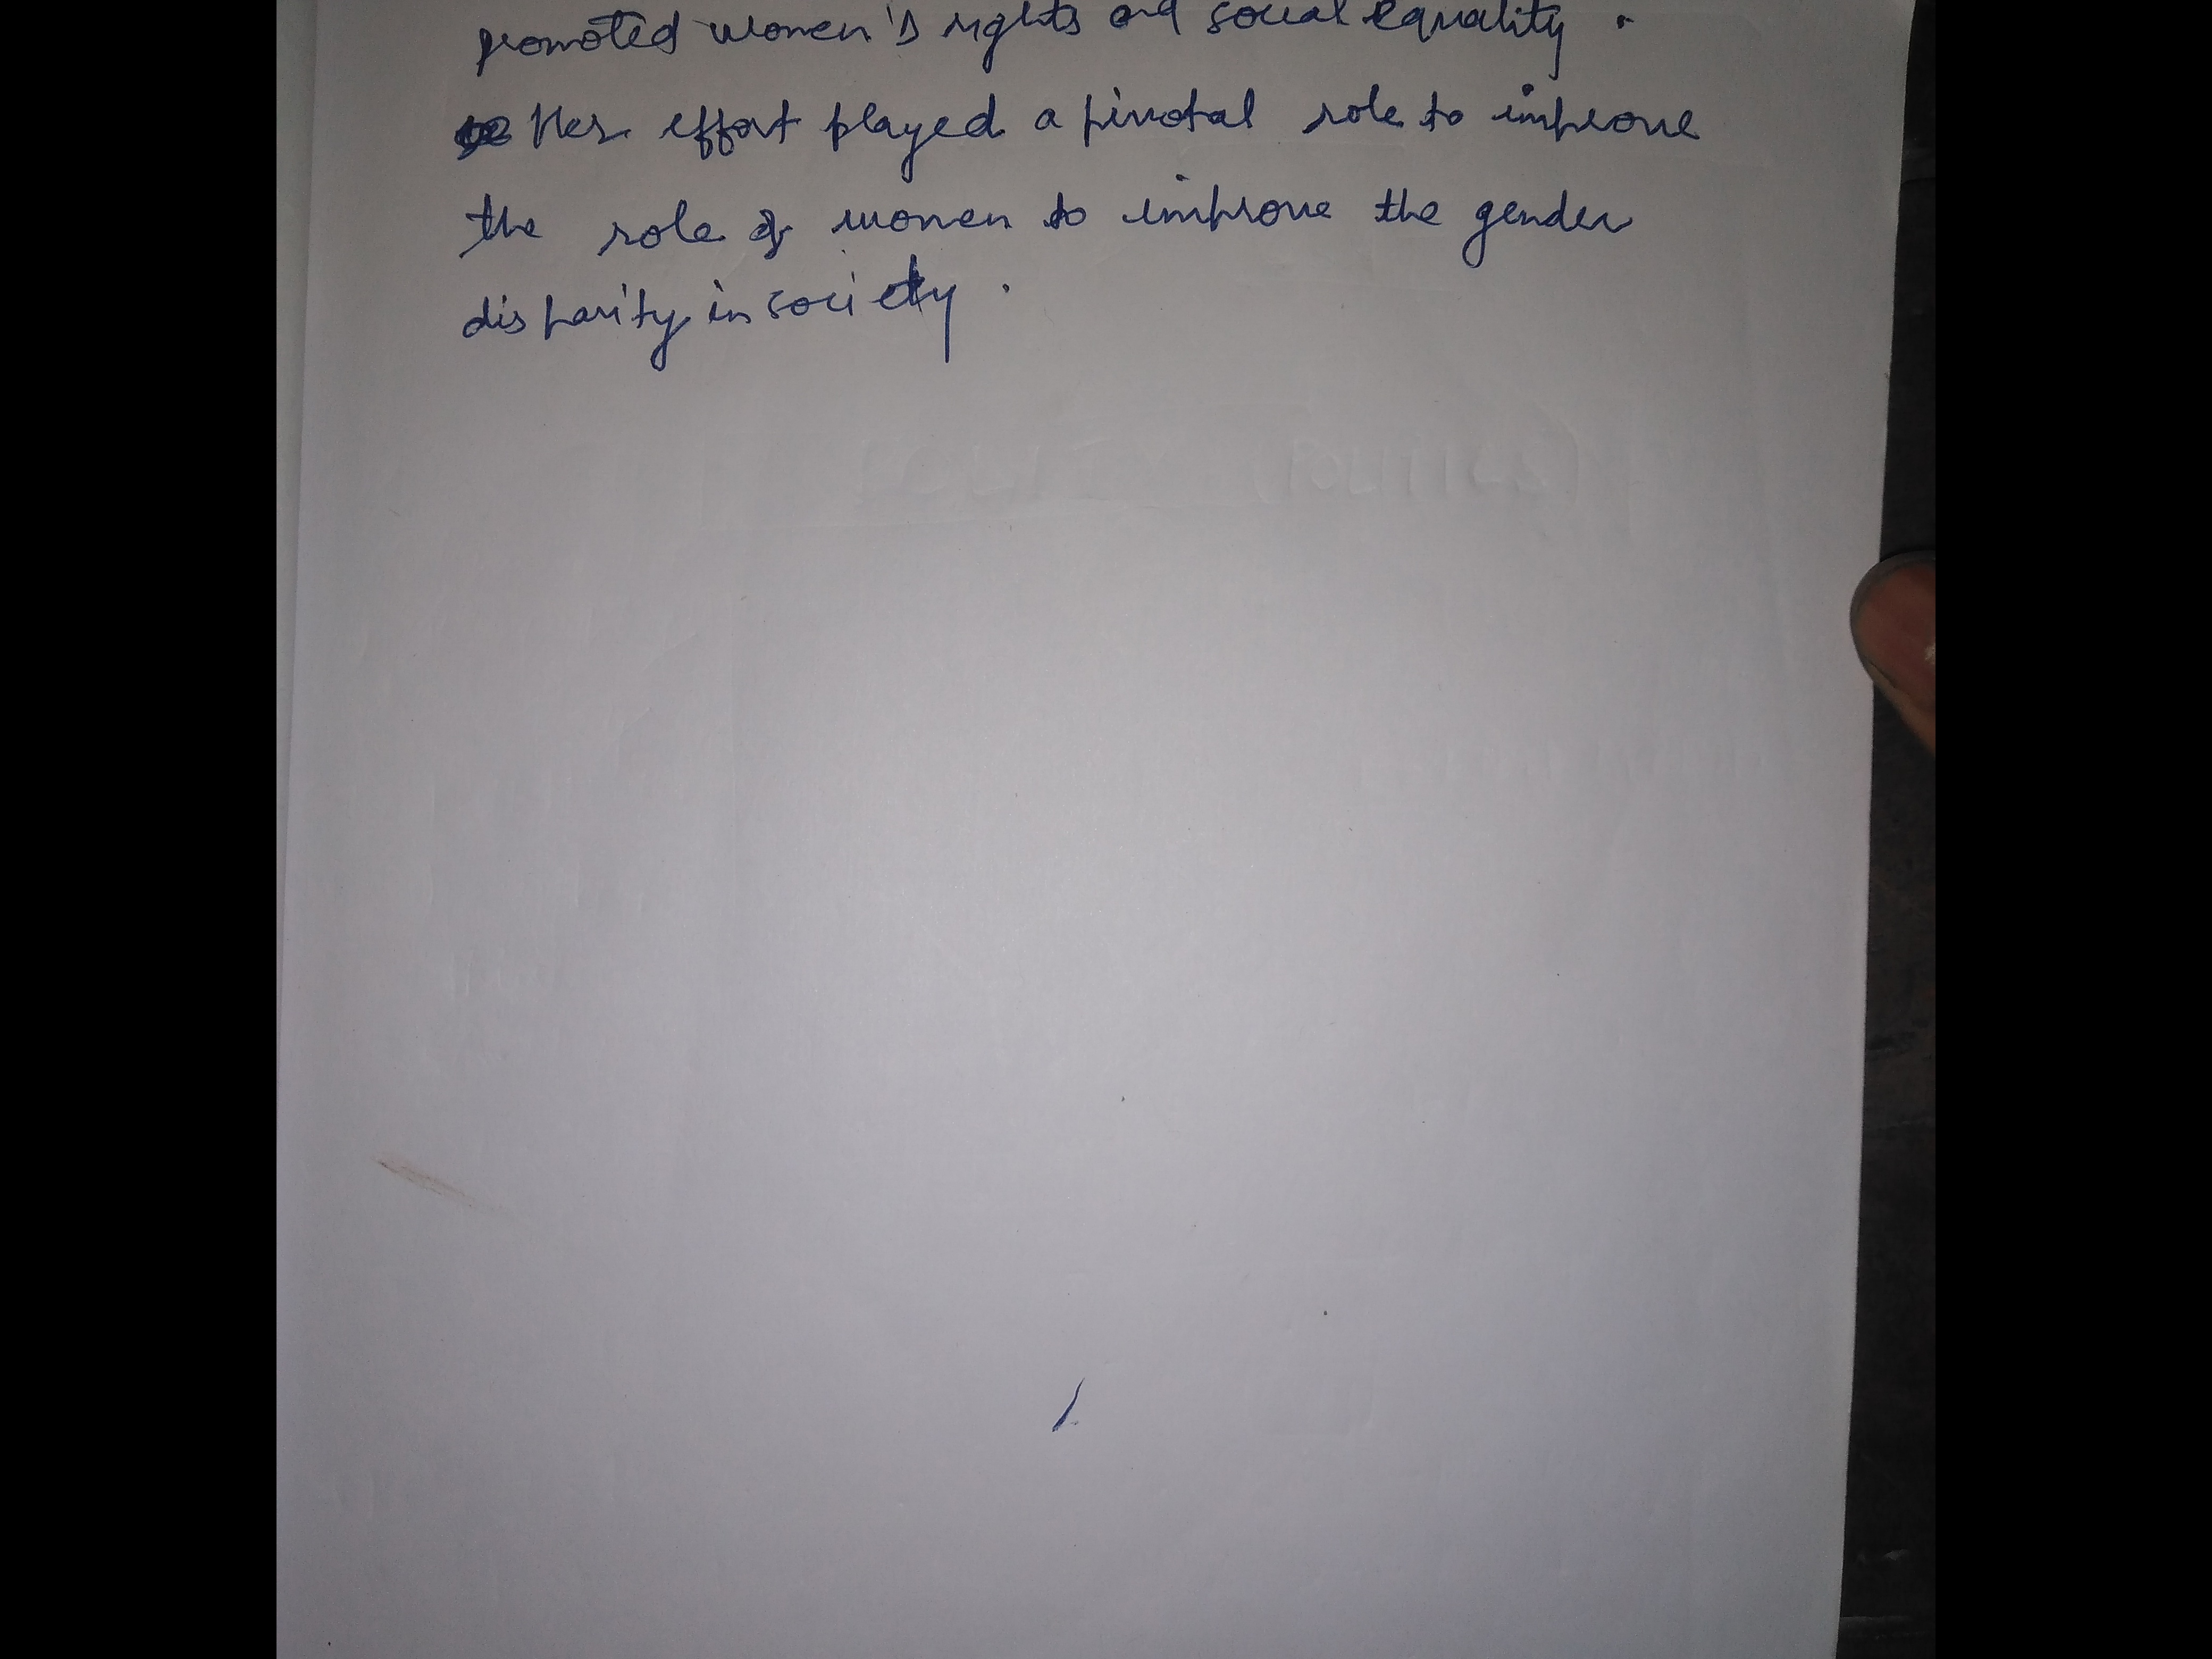 promoted women's rights and social equality.
Her effort played a pivotal role to improve
the role of women to improve the gender
disparity in society.